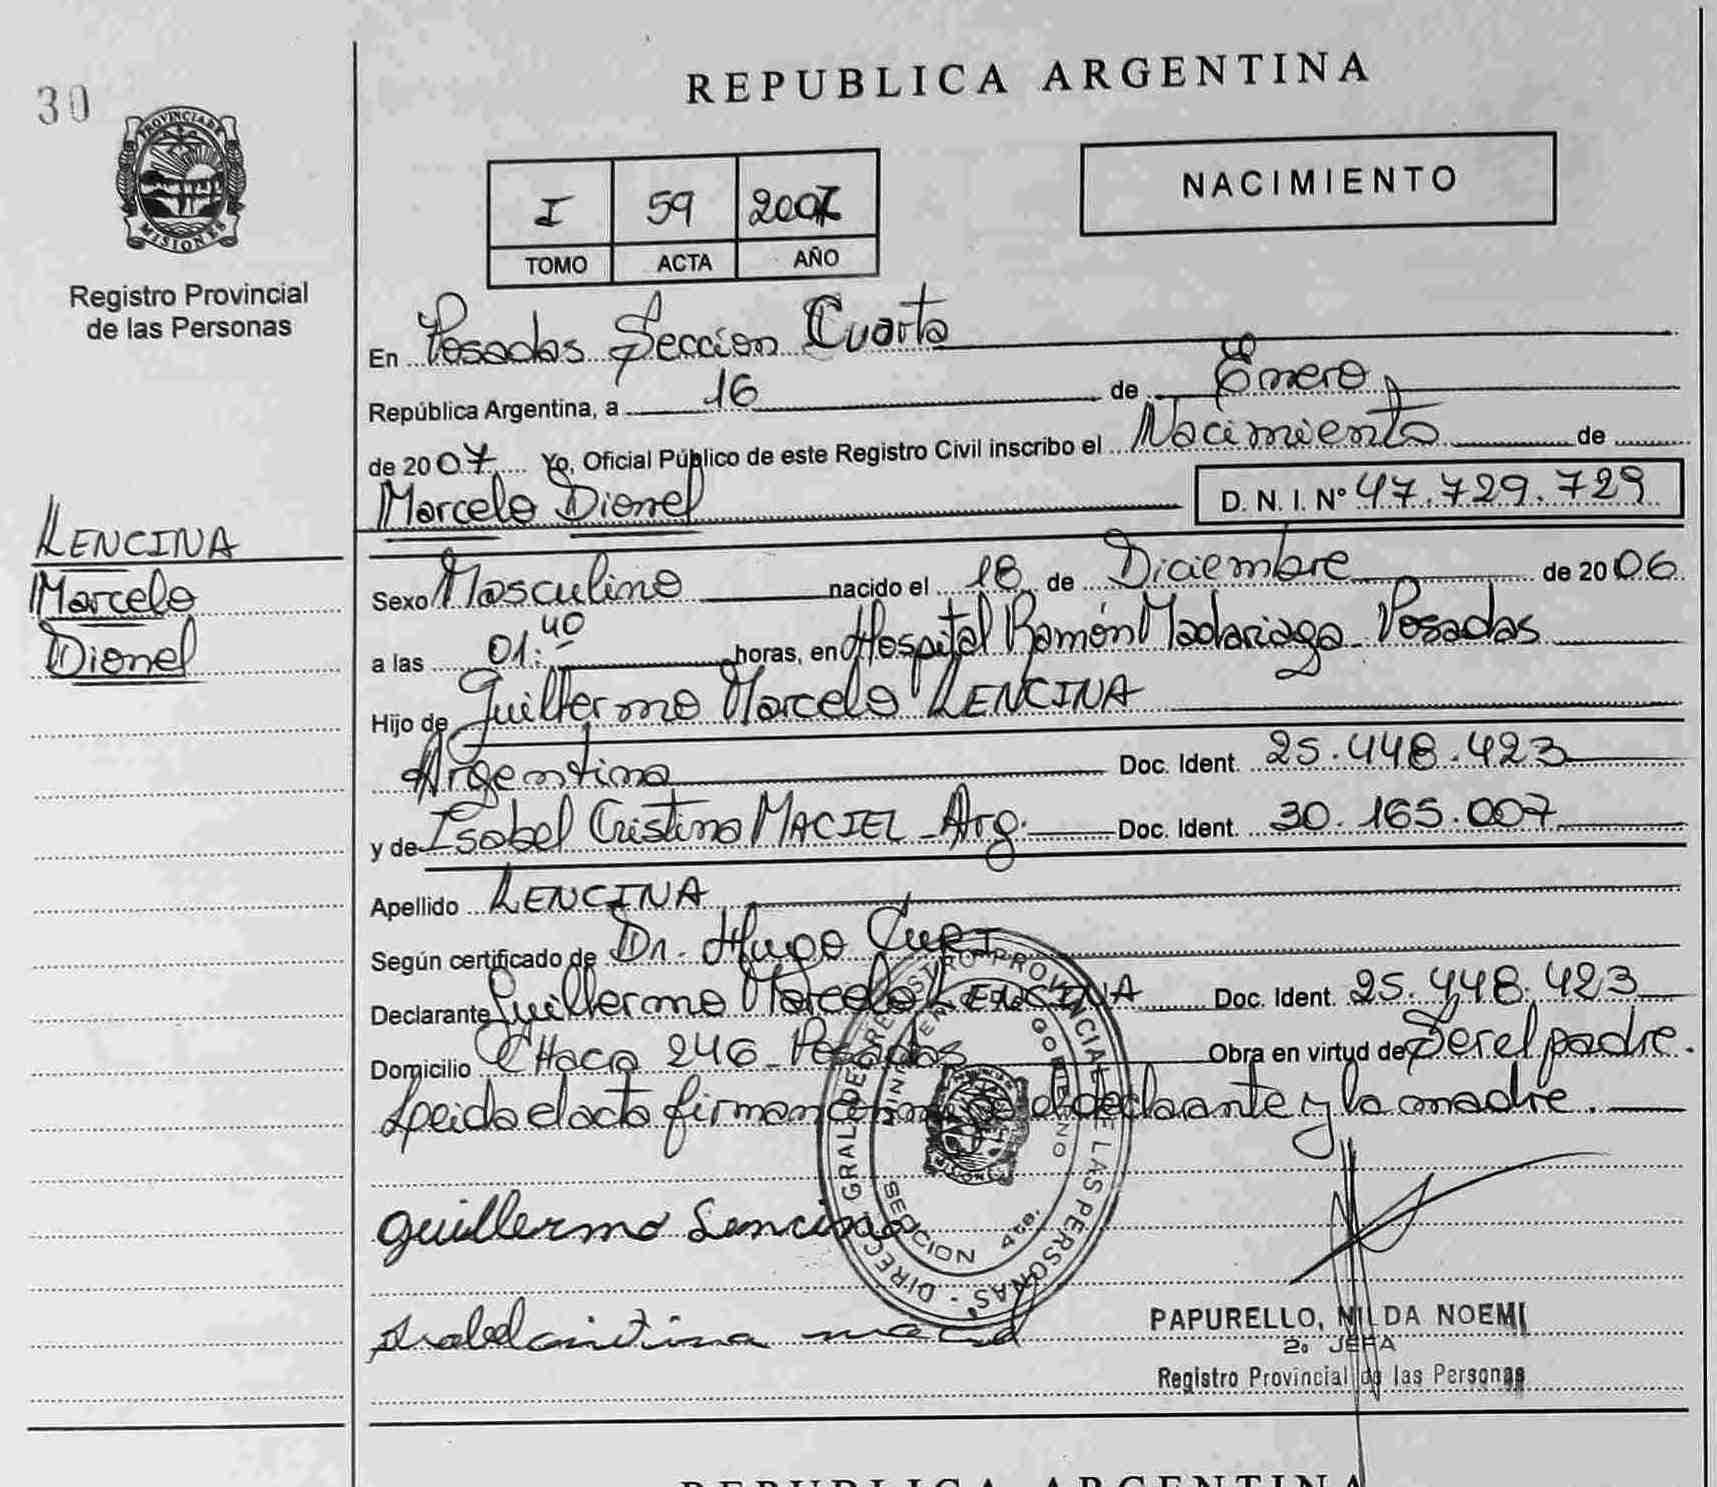 REPUBLICA ARGENTINA
30
PROVINCIA DE
MISIONES
Registro Provincial
de las Personas
I 59 2007
TOMO ACTA AÑO
NACIMIENTO
En Posadas Seccion Cuarta
República Argentina, a 16 de Enero
de 2007 Yo, Oficial Público de este Registro Civil inscribo el Nacimiento de
Marcelo Dionel D. N. I. Nº 47.729.729
LENCINA
Marcelo
Dionel
Sexo Masculino nacido el 18 de Diciembre de 2006
a las 01:40 horas, en Hospital Ramón Madariaga - Posadas
Hijo de Guillermo Marcelo LENCINA
Argentina Doc. Ident. 25.448.423
y de Isabel Cristina MACIEL - Arg. Doc. Ident. 30.165.007
Apellido LENCINA
Según certificado de Dr. Hugo Curi
Declarante Guillermo Marcelo LENCINA Doc. Ident. 25.448.423
Domicilio CHaco 246 - Posadas Obra en virtud de Ser el padre.
Leida el acta firman conmigo el declarante y la madre.
DIRECC. GRAL DE REGISTRO PROVINCIAL DE LAS PERSONAS -
GOBIERNO
SECCION 4ta.
MISIONES
Guillermo Lencina
Isabel cristina maciel
PAPURELLO, NILDA NOEMI
2º JEFA
Registro Provincial de las Personas
REPUBLICA ARGENTINA